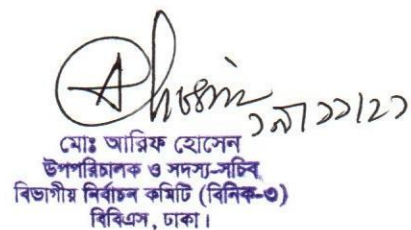 ২৯/১১/২১
মোঃ আরিফ হোসেন
উপপরিচালক ও সদস্য-সচিব
বিভাগীয় নির্বাচন কমিটি (বিনিক-৩)
বিবিএস, ঢাকা।